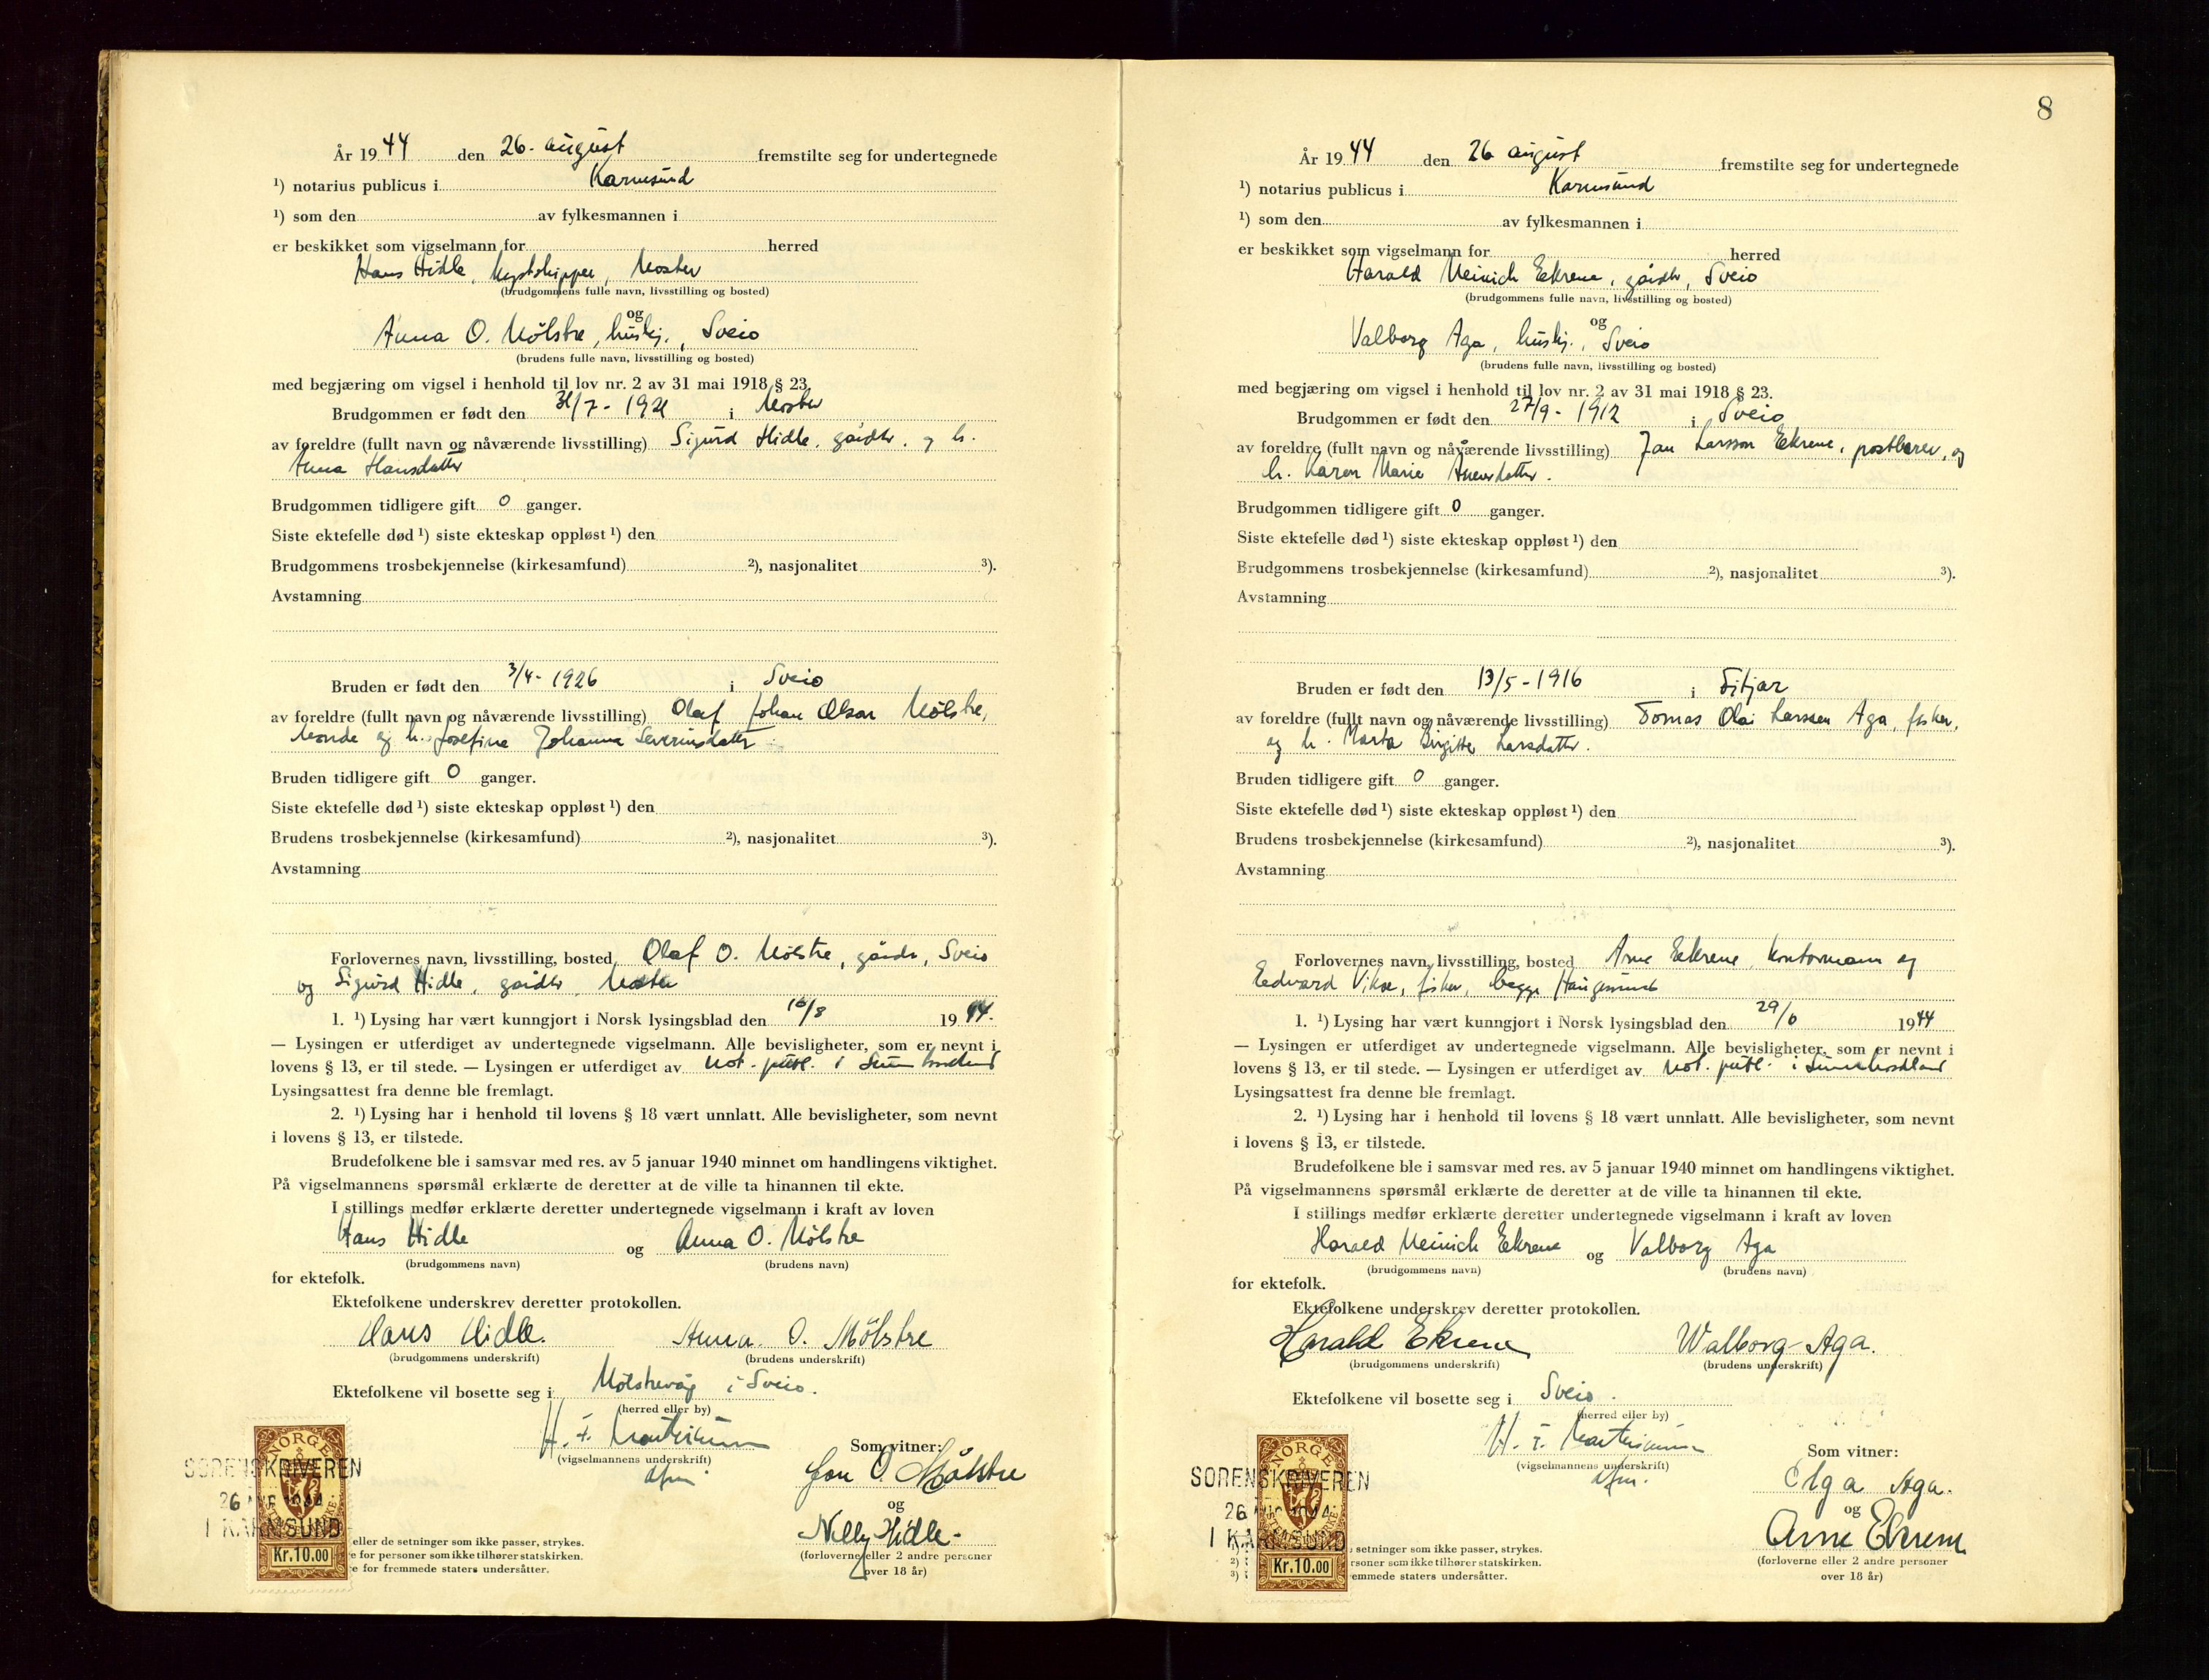 År 1944 den 26. august fremstilte seg for undertegnede
¹) notarius publicus i Karmsund
¹) som den av fylkesmannen i
er beskikket som vigselmann for herred
Hans Hidle, kystskipper, Moster
(brudgommens fulle navn, livsstilling og bosted)
og
Anna O. Mølstre, huskj., Sveio
(brudens fulle navn, livsstilling og bosted)
med begjæring om vigsel i henhold til lov nr. 2 av 31 mai 1918 § 23.
Brudgommen er født den 31/7 - 1921 i Moster
av foreldre (fullt navn og nåværende livsstilling) Sigurd Hidle, gårdbr. og h.
Anna Hansdatter
Brudgommen tidligere gift 0 ganger.
Siste ektefelle død ¹) siste ekteskap oppløst ¹) den
Brudgommens trosbekjennelse (kirkesamfund) ²), nasjonalitet ³).
Avstamning
Bruden er født den 3/4 - 1926 i Sveio
av foreldre (fullt navn og nåværende livsstilling) Olaf Johan Olsen Mølstre,
bonde og h. Josefine Johanna Severinsdatter
Bruden tidligere gift 0 ganger.
Siste ektefelle død ¹) siste ekteskap oppløst ¹) den
Brudens trosbekjennelse (kirkesamfund) ²), nasjonalitet ³).
Avstamning
Forlovernes navn, livsstilling, bosted Olaf O. Mølstre, gårdbr, Sveio
og Sigurd Hidle, gårdbr, Moster
1. ¹) Lysing har vært kunngjort i Norsk lysingsblad den 16/8 1944.
— Lysingen er utferdiget av undertegnede vigselmann. Alle bevisligheter, som er nevnt i
lovens § 13, er til stede. — Lysingen er utferdiget av not. publ. i Sunnhordland
Lysingsattest fra denne ble fremlagt.
2. ¹) Lysing har i henhold til lovens § 18 vært unnlatt. Alle bevisligheter, som nevnt
i lovens § 13, er tilstede.
Brudefolkene ble i samsvar med res. av 5 januar 1940 minnet om handlingens viktighet.
På vigselmannens spørsmål erklærte de deretter at de ville ta hinannen til ekte.
I stillings medfør erklærte deretter undertegnede vigselmann i kraft av loven
Hans Hidle og Anna O. Mølstre
(brudgommens navn) (brudens navn)
for ektefolk.
Ektefolkene underskrev deretter protokollen.
Hans Hidle. Anna O. Mölstre
(brudgommens underskrift) (brudens underskrift)
Ektefolkene vil bosette seg i Mølstrevåg i Sveio.
(herred eller by)
H. F. Martinsen
(vigselmannens underskrift)
Som vitner:
Jon O. Mølstre
og
Nelly Hidle
(forloverne eller 2 andre personer
over 18 år)
NORGE
SORENSKRIVEREN
26 AUG 1944
I KARMSUND
Kr.10.00
eller de setninger som ikke passer, strykes.
e for personer som ikke tilhører statskirken.
e for fremmede staters undersåtter.
8
År 1944 den 26 august fremstilte seg for undertegnede
¹) notarius publicus i Karmsund
¹) som den av fylkesmannen i
er beskikket som vigselmann for herred
Harald Meinich Eekrene, gårdbr, Sveio
(brudgommens fulle navn, livsstilling og bosted)
og
Valborg Aga, huskj., Sveio
(brudens fulle navn, livsstilling og bosted)
med begjæring om vigsel i henhold til lov nr. 2 av 31 mai 1918 § 23.
Brudgommen er født den 27/9 - 1912 i Sveio
av foreldre (fullt navn og nåværende livsstilling) Jan Larsson Eekrene, postbærer, og
h. Karen Marie
Brudgommen tidligere gift 0 ganger.
Siste ektefelle død ¹) siste ekteskap oppløst ¹) den
Brudgommens trosbekjennelse (kirkesamfund) ²), nasjonalitet ³).
Avstamning
Bruden er født den 13/5 - 1916 i Fitjar
av foreldre (fullt navn og nåværende livsstilling) Tomas Olai Larssen Aga, fisker,
og h. Marta Birgitte Larsdatter.
Bruden tidligere gift 0 ganger.
Siste ektefelle død ¹) siste ekteskap oppløst ¹) den
Brudens trosbekjennelse (kirkesamfund) ²), nasjonalitet ³).
Avstamning
Forlovernes navn, livsstilling, bosted Arne Eekrene, kontormann og
Eedvard Vikse, fisker, begge Haugesund
1. ¹) Lysing har vært kunngjort i Norsk lysingsblad den 29/6 1944
— Lysingen er utferdiget av undertegnede vigselmann. Alle bevisligheter, som er nevnt i
lovens § 13, er til stede. — Lysingen er utferdiget av not. publ. i Sunnhordland
Lysingsattest fra denne ble fremlagt.
2. ¹) Lysing har i henhold til lovens § 18 vært unnlatt. Alle bevisligheter, som nevnt
i lovens § 13, er tilstede.
Brudefolkene ble i samsvar med res. av 5 januar 1940 minnet om handlingens viktighet.
På vigselmannens spørsmål erklærte de deretter at de ville ta hinannen til ekte.
I stillings medfør erklærte deretter undertegnede vigselmann i kraft av loven
Harald Meinich Eekrene og Valborg Aga
(brudgommens navn) (brudens navn)
for ektefolk.
Ektefolkene underskrev deretter protokollen.
Harald Ekrene Walborg Aga.
(brudgommens underskrift) (brudens underskrift)
Ektefolkene vil bosette seg i Sveio.
(herred eller by)
H. F. Martinsen
(vigselmannens underskrift)
Som vitner:
Olga Aga.
og
Arne Ekrene
(forloverne eller 2 andre personer
over 18 år)
NORGE
SORENSKRIVEREN
26 AUG 1944
I KARMSUND
Kr.10.00
setninger som ikke passer, strykes.
²) rsoner som ikke tilhører statskirken.
³) emmede staters undersåtter.